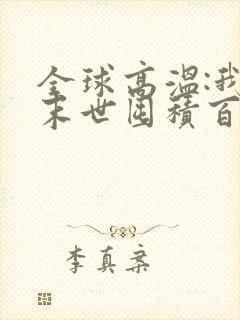 全球高温:我
末世囤积百
李真来